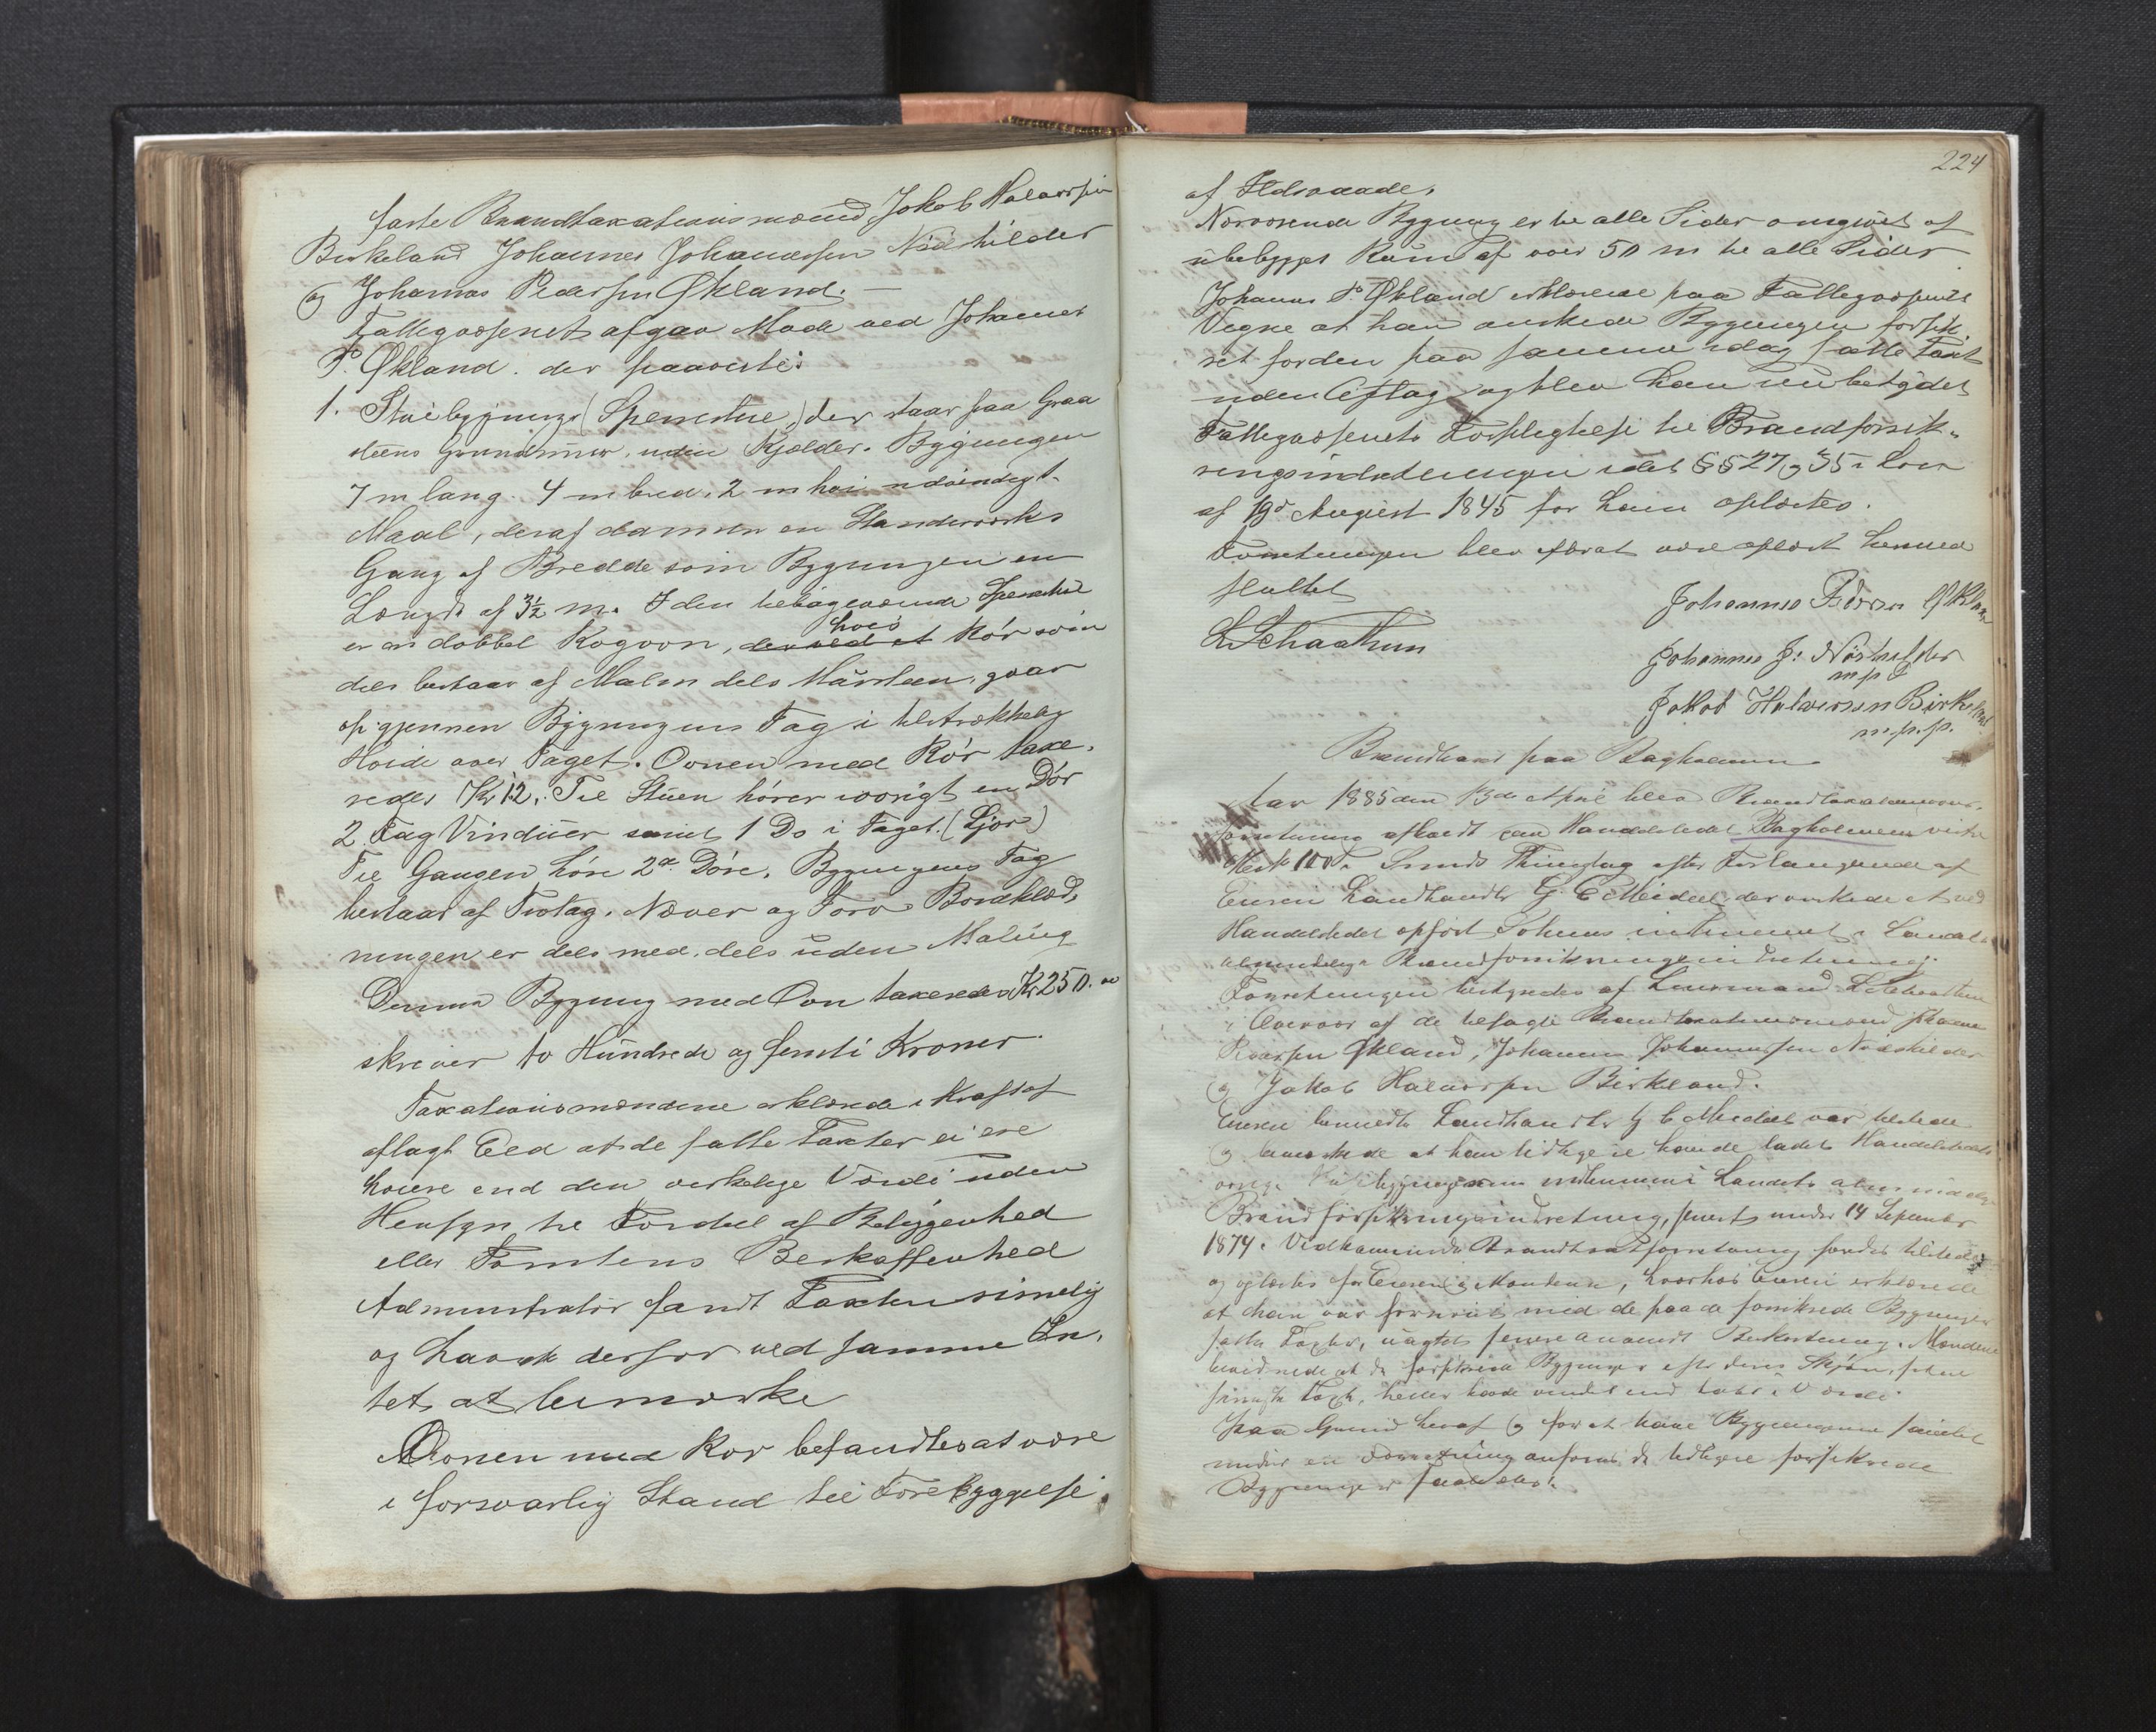 faste Brandtaxationsmænd Jokob Halvorsen
Birkeland Johannes Johannessen Nödskilder
og Johannes Pedersen Økland. —
Fattigvæsenet afgav Møde ved Johannes
P. Økland. der paaviste:
1. Stuebygninge (Sperrstue) der staar paa Graa
steens Grundmur, uden Kjælder. Bygningen
7 m lang. 4 m bred. 2 m høi udvendigt
Maal, deraf danner en Standværks
Gang af Bredde som Bygningen en
Længde af 3½ m. I den tilbageværende Sperrstue
er en dobbel Kogovn, der ved et hvis Rör som
dels bestaar af Malm dels Mursteen, gaar
op gjennem Bygningens Tag i tilstrækkelig
Høide over Taget. Ovnen med Rör taxe-
redes Kr 12. Til Stuen hörer iövrigt en Dör
2 Fag Vinduer samt 1 Do i Taget. (Ljor)
Til Gangen höre 2de Döre. Bygningens Tag
bestaar af Trotag. Næver og Torv Bordklæd-
ningen er dels med, dels uden Maling
Denne Bygning med Ovn taxeredes Kr 250. 00
skriver to Hundrede og femti Kroner
Taxationsmændene erklærede i Kraft af
aflagt Eed at de satte Taxter ei ere
høiere end den virkelige Værdi uden
Hensyn til Fordeel af Beliggenhed
eller Tomtens Beskaffenhed
Administrator fandt Taxten rimelig
og havde derfor ved samme In-
tet at bemærke
Ovonen med Rör befandtes at være
i forsvarlig Stand til Forebyggelse
224
af Ildsvaade.
Nærværende Bygning er til alle Sider omgivet af
ubebygget Rum af over 50 m til alle Sider
Johannes P. Økland erklærede paa Fattigvæsenets
Vegne at han önskede Bygningen forsik-
ret for den paa samme idag satte Taxt
uden Aftag og blev han nu betydet
Fattigvæsenets Forpligtelse til Brandforsik-
ringsindretningen idet §§ 27 og 35 i Lov
af 19de August 1845 for ham oplæstes.
Forretningen blev efterat være oplæst hermed
sluttet
L Schaathun
Johannes Pedersen Økland
Johannes J: Nöskelder
m p P
Jakob Halvorsen Birkeland
m. p. p.
Brandtaxt paa Bagholmen
Aar 1885 den 13de April blev Brandtaxations-
forretning afholdt paa Handelsstedet Bagholmen
Mat No 100 i Sunds Thinglag efter Forlangende af
Eieren Landhandler G. C Meidell, der önskede et ved
Handelsstedet opfört indlemmet i Landets
almindelige Brandforsikringsindretning.
Forretningen bestyredes af Lensmand L Schaathun
i Overvær af de befaste Brandtaxationsmænd Johannes
Pedersen Økland, Johannes Johannessen Nödskilder
og Jakob Halvorsen Birkland.
Eieren Landhandler G C Meidell var tilstede
og bemærkede at han tidligere havde ladet Handelsstedets
övrige bygninger indlemme i Landets almindelige
Brandforsikringsindretning, senest under 14 September
1874. Vedkommende Brandtaxtforretning fandtes tilstede
og oplæstes for Eieren og Mændene, hvorhos Eieren erklærede
at han var fornöiet med de paa de forsikrede Bygninger
satte Taxter, uagtet senere anvendt Bekostning. Mændene
de forsikrede Bygninger efter deres Skjön, siden
sidste Taxt, heller havde vundet end tabt i Værdi
Paa Grund heraf og for at have Bygningerne samlet
under en Forretning anföres de tidligere forsikrede
Bygninger saaledes: